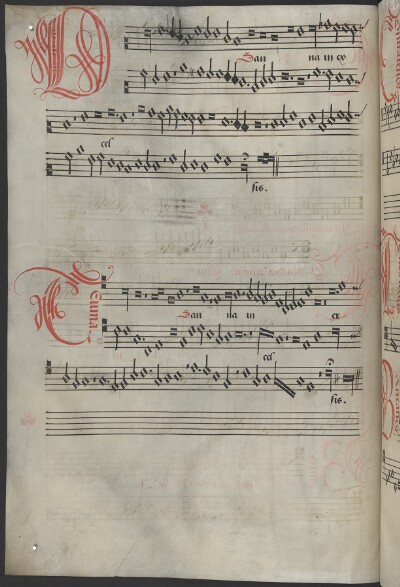 O
San na in ex
cel
sis.
Secunda
San na in ex
cel
sis.